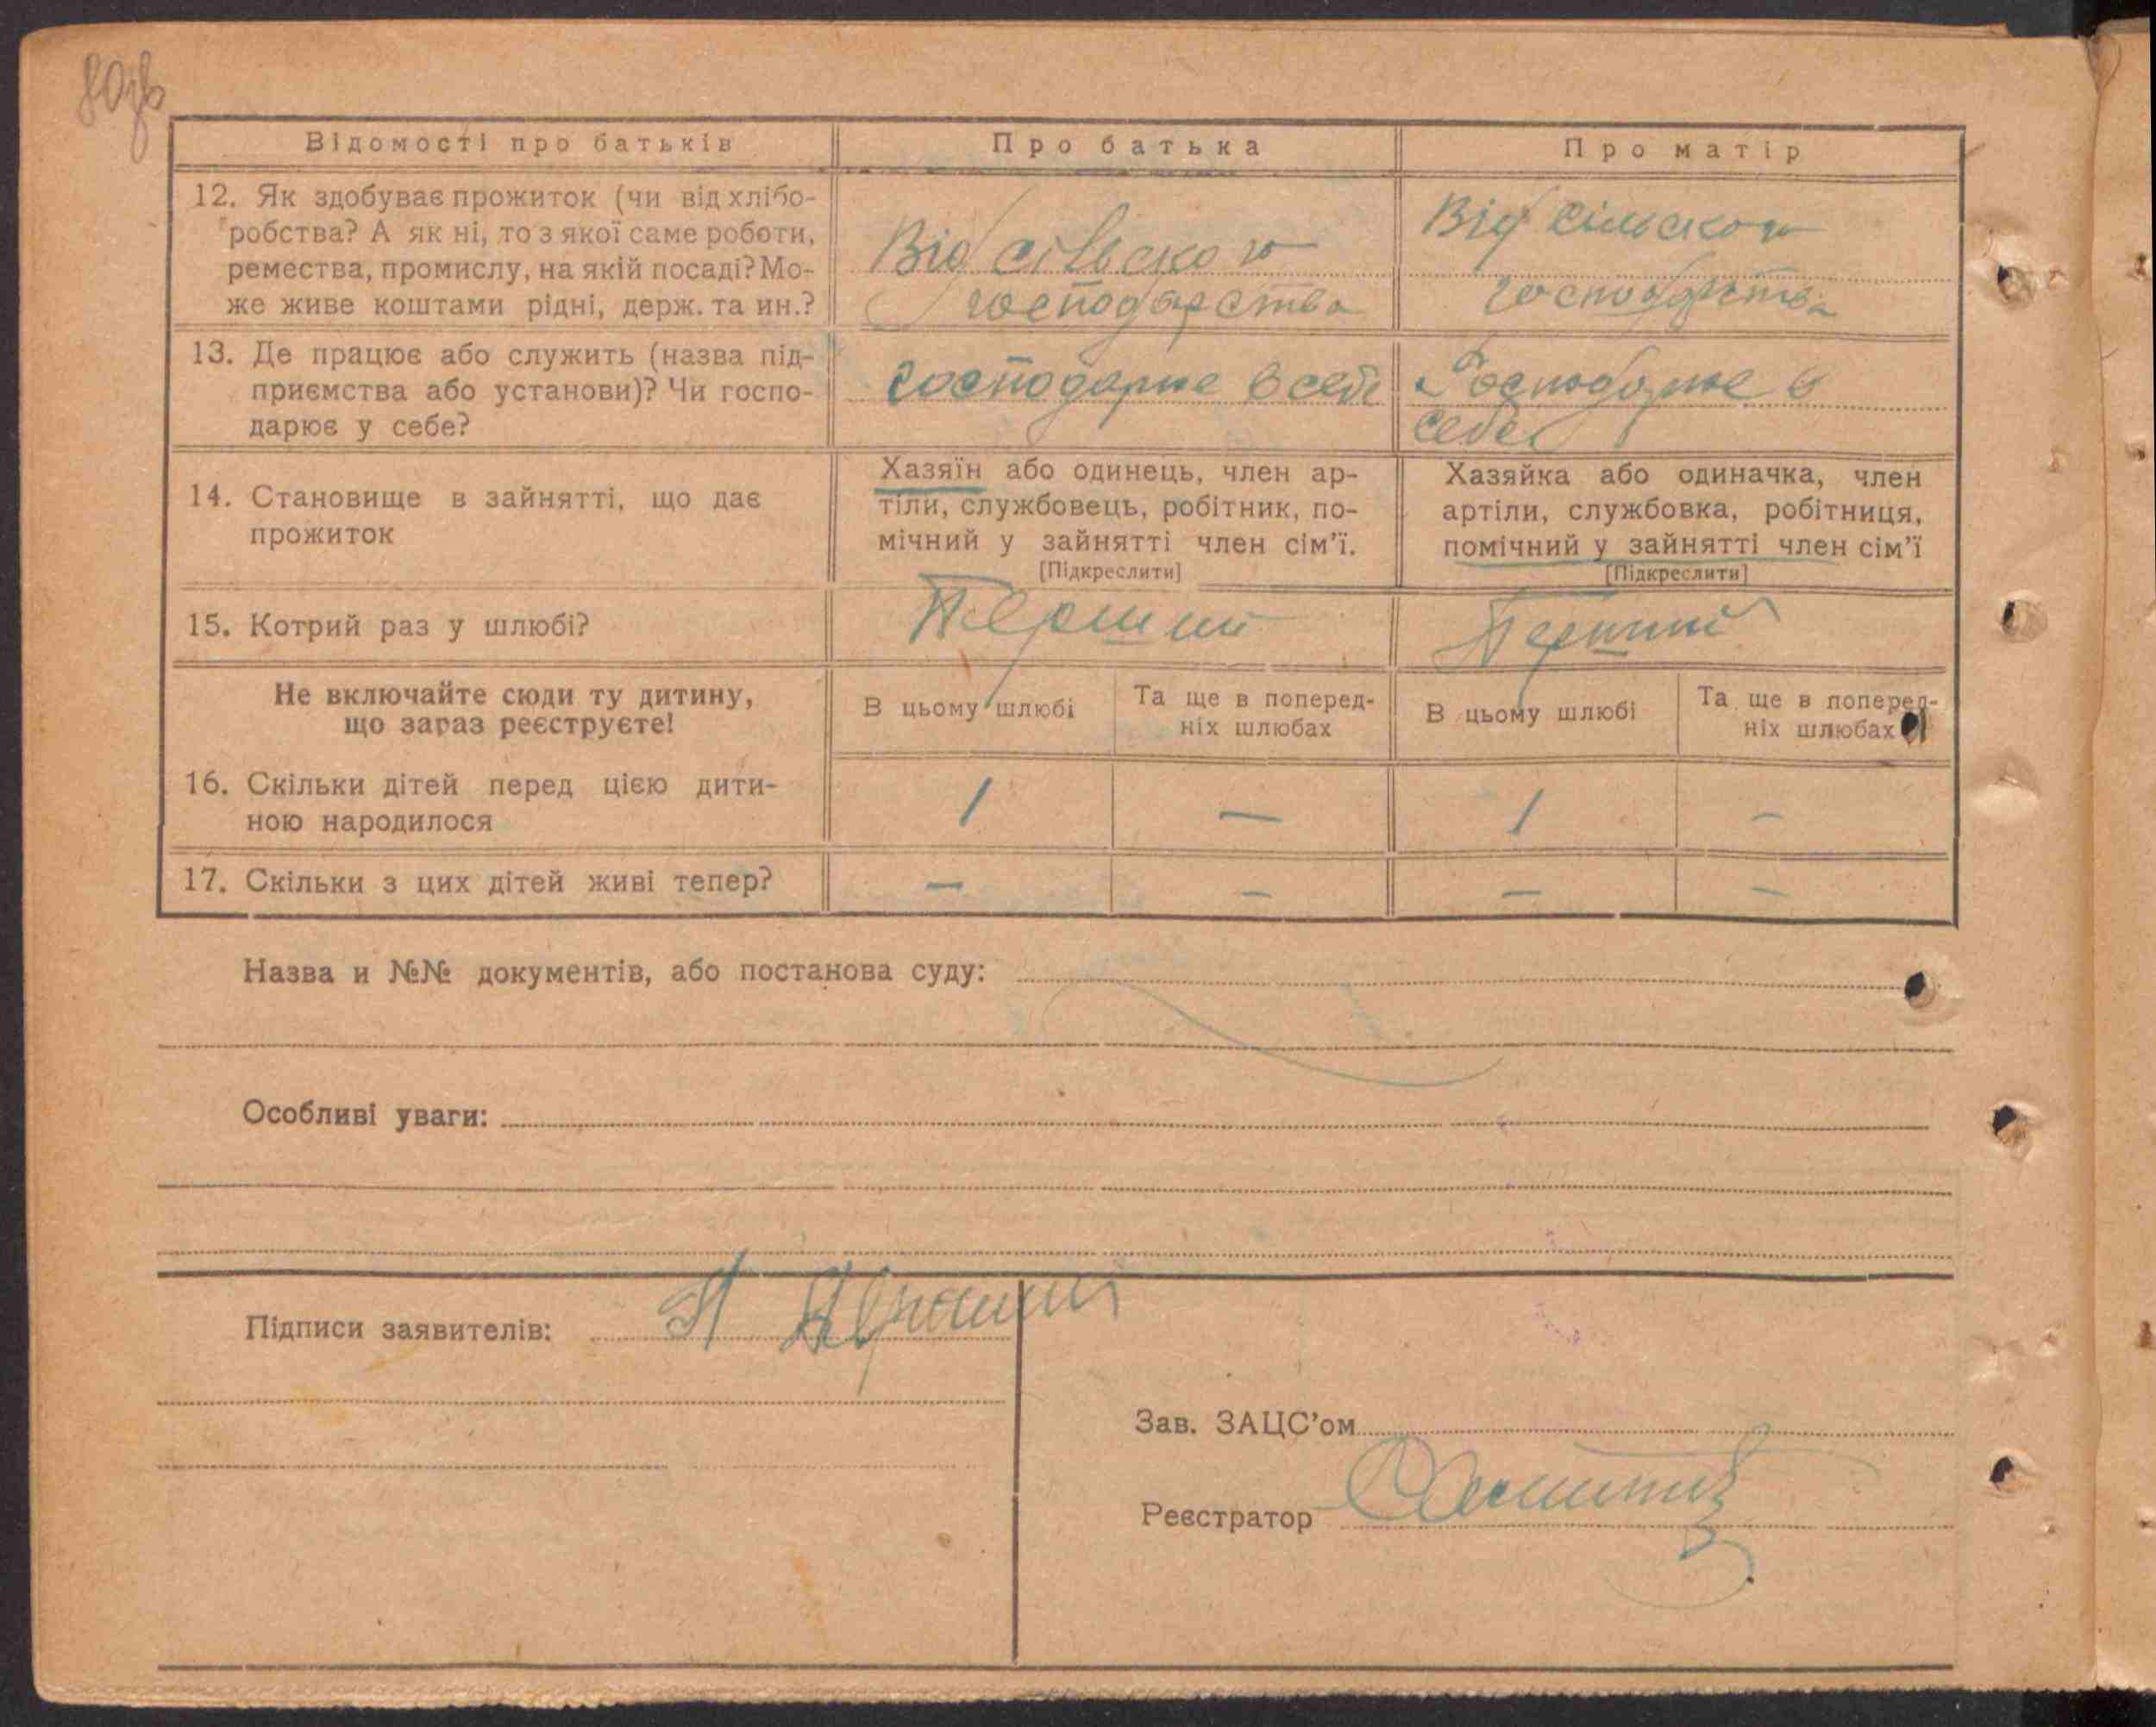 80зв
Відомості про батьків
Про батька
Про матір
12. Як здобуває прожиток (чи від хлібо-
робства? А як ні, то з якої саме роботи,
ремества, промислу, на якій посаді? Мо-
же живе коштами рідні, держ. та ин.?
Від сільского
господарства
Від сільского
господарства
13. Де працює або служить (назва під-
приємства або установи)? Чи госпо-
дарює у себе?
господарює в себе
Господарює в
себе
14. Становище в зайнятті, що дає
прожиток
Хазяїн або одинець, член ар-
тіли, службовець, робітник, по-
мічний у зайнятті член сім'ї.
[Підкреслити]
Хазяйка або одиначка, член
артіли, службовка, робітниця,
помічний у зайнятті член сім'ї
[Підкреслити]
15. Котрий раз у шлюбі?
Перший
Перший
Не включайте сюди ту дитину,
що зараз реєструєте!
В цьому шлюбі
Та ще в поперед-
ніх шлюбах
В цьому шлюбі
Та ще в поперед-
ніх шлюбах
16. Скільки дітей перед цією дити-
ною народилося
1 — 1 —
17. Скільки з цих дітей живі тепер?
— — — —
Назва и №№ документів, або постанова суду:
Особливі уваги:
Підписи заявителів:
Зав. ЗАЦС'ом
Реєстратор